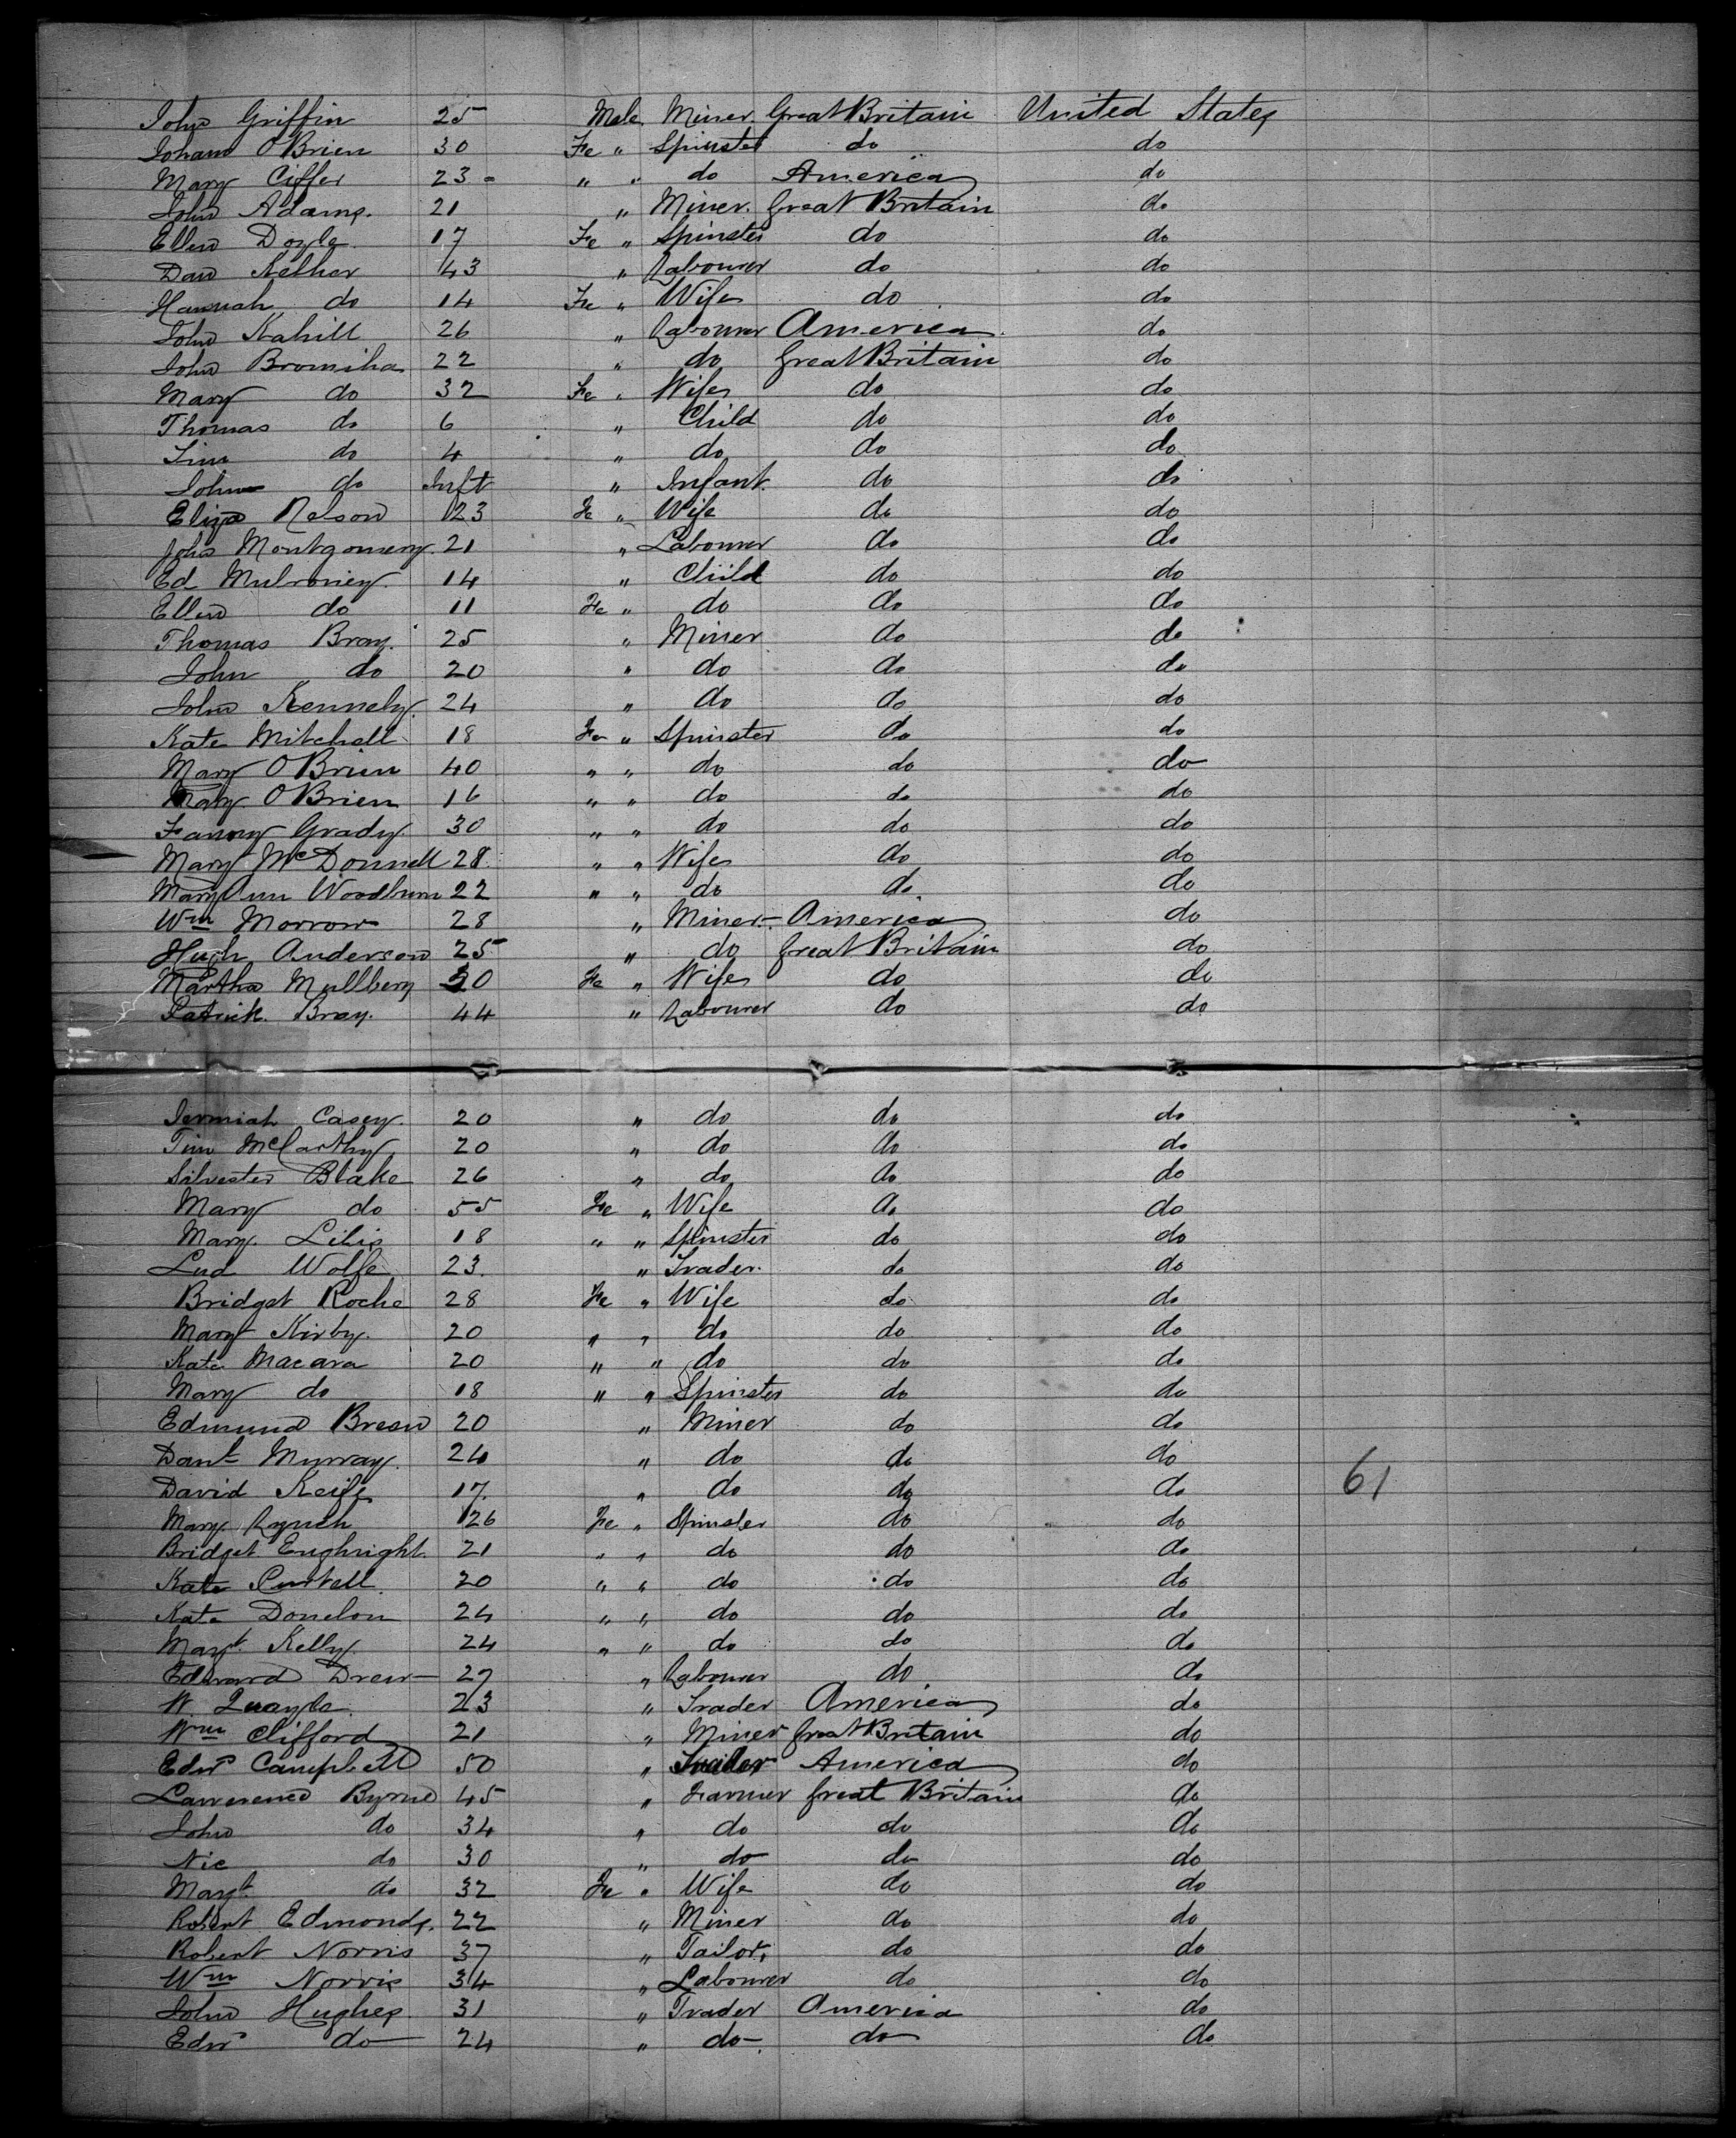 John Griffin 25 Male Miner Great Britain United States
Johana O'Brien 30 Fe " Spinster do do
Mary Ciffer 23 " " do America do
John Adams. 21 " Miner. Great Britain do
Ellen Doyle 17 Fe " Spinster do do
Dan Kelher 43 " Labourer do do
Hannah do 14 Fe " Wife do do
John Kahill 26 " Labourer America do
John Bromiha 22 " do Great Britain do
Mary do 32 Fe " Wife do do
Thomas do 6 " Child do do
Tim do 4 " do do do
John do Inft " Infant. do do
Eliza Nelson 23 Fe " Wife do do
John Montgomery. 21 " Labourer do do
Ed Mulroney. 14 " Child do do
Ellen do 11 Fe " do do do
Thomas Bray. 25 " Miner do do
John do 20 " do do do
John Kennely. 24 " do do do
Kate Mitchell 18 Fe " Spinster do do
Mary O'Brien 40 " " do do do
Mary O'Brien 16 " " do do do
Fanny Grady 30 " " do do do
Mary McDonnell 28 " " Wife do do
Mary Ann Woodburn 22 " " do do do
Wm Morrow 28 " Miner America do
Hugh Anderson 25 " do Great Britain do
Martha Mullbery 30 Fe " Wife do do
Patrick. Bray. 44 " Labourer do do
Jermiah Casey. 20 " do do do
Tim McCarthy 20 " do do do
Silvester Blake 26 " do do do
Mary do 55 Fe " Wife do do
Mary. Lilis 18 " " Spinster do do
Lud Wolfe 23. " Trader. do do
Bridget Roche 28 Fe " Wife do do
Margt Kirby. 20 " " do do do
Kate Macara 20 " " do do do
Mary do 18 " " Spinster do do
Edmund Bresn 20 " Miner do do
Danl Murray. 24 " do do do 61
David Keife 17. " do do do
Mary Lynch 26 Fe " Spinster do do
Bridget Enghright. 21 " " do do do
Kate Purtell. 20 " " do do do
Kate Donelon 24 " " do do do
Margt. Kelly. 24 " " do do do
Edward Drew 27 " Labourer do do
W. Quayle. 23 " Trader America do
Wm Clifford 21 " Miner Great Britain do
Edwd Campbell 50 " Trader America do
Lawrence Byrne 45 " Farmer Great Britain do
John do 34 " do do do
Nic do 30 " do do do
Margt. do 32 Fe " Wife do do
Robert Edmonds. 22 " Miner do do
Robert Norris 37 " Tailor. do do
Wm Norris 34 " Labourer do do
John Hughes 31 " Trader America do
Edwd do 24 " do do do